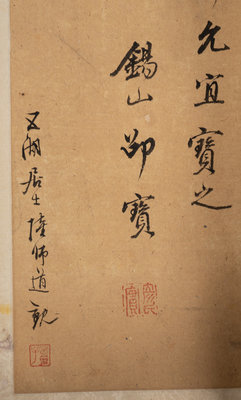 允宜寶之
錫山邵寶
五湖居士陸師道觀